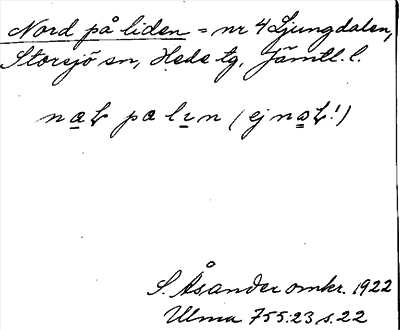 Nord på liden = nr 4 Ljungdalen,
Storsjö sn, Hede tg, Jämtl. l.
pa (ej !)
S. Åsander omkr. 1922
Ulma 755:23 s. 22